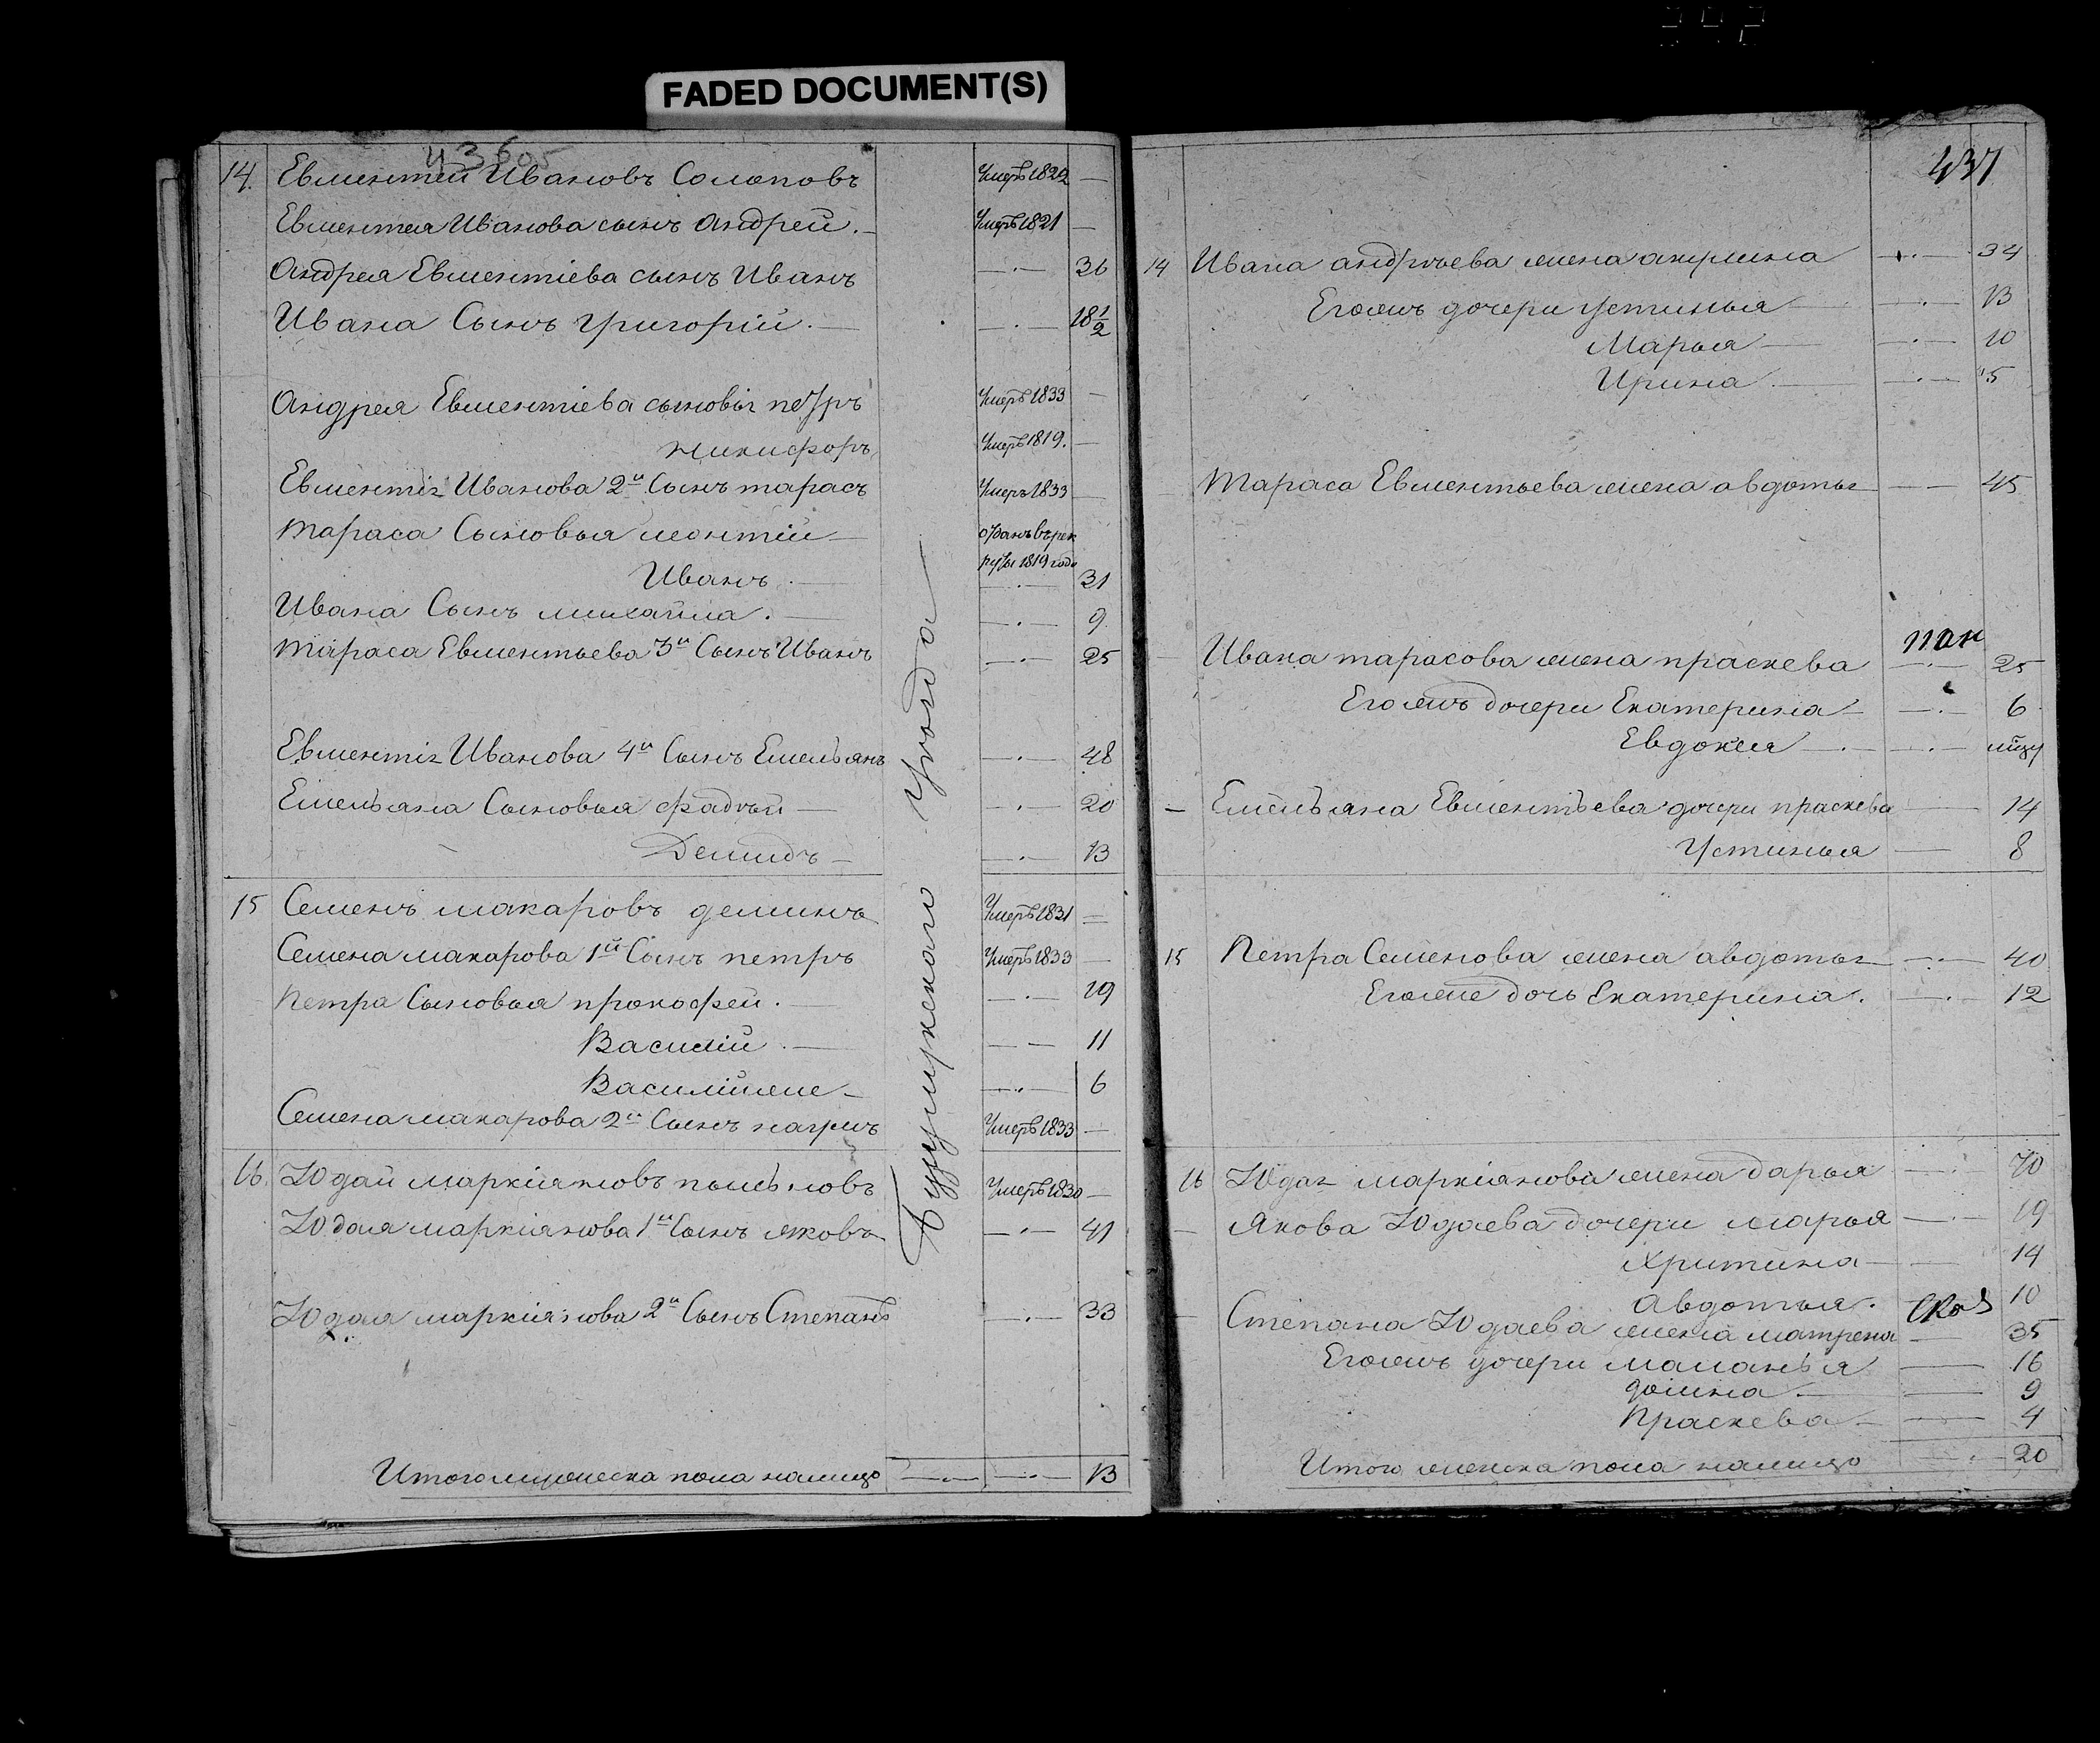 FADED DOCUMENT(S)
14. Евментей Ивановъ Солоповъ Умеръ 1822 —
Евментея Иванова сынъ Андрей. — Умеръ 1821 —
Андрея Евментіева сынъ Иванъ — 36
Ивана Сынъ Григорій. — 18 1/2
Андрея Евментіева сыновья петръ Умеръ 1833 —
Никифоръ Умеръ 1819. —
Евментія Иванова 2й Сынъ тарасъ Умеръ 1833 —
Тараса Сыновья леонтій — отданъ въ рек
руты 1819 года
Иванъ. — 31
Ивана Сынъ михайла. — 9
Тараса Евментьева 3й Сынъ Иванъ — 25
Евментія Иванова 4й Сынъ Емельянъ — 48
Емельяна Сыновья фадѣй — 20
Демидъ — 13
15 Семенъ макаровъ деминъ Умеръ 1831 —
Семена макарова 1й Сынъ петръ Умеръ 1833 —
Петра Сыновья прокофей. — 19
Василій — 11
Василійже — 6
Семена макарова 2й Сынъ карпъ Умеръ 1833 —
16. Юдай маркіяновъ Умеръ 1830 —
Юдая маркіянова 1й Сынъ яковъ — 41
Юдая маркіянова 2й Сынъ Степанъ — 33
Итого мужеска пола налицо — 13
уѣзда
437
14 Ивана андрѣева жена акулина — 34
Егожъ дочери устинья — 13
Марья — 10
Ирина — 5
Тараса Евментьева жена авдотья — 45
Ивана тарасова жена праскева — 25
Егожъ дочери Екатерина — 6
Евдокея —
— Емельяна Евментьева дочери праскева — 14
Устинья — 8
15 Петра Семенова жена авдотья — 40
Егоже дочь Екатерина. — 12
16 Юдая маркіянова жена дарья — 70
— Якова Юдаева дочери марья — 19
Хритина — 14
Авдотья. — 10
— Степана Юдаева жена матрена — 35
Егожъ дочери маланья — 16
домна — 9
Праскева — 4
Итого женска пола налицо — 20